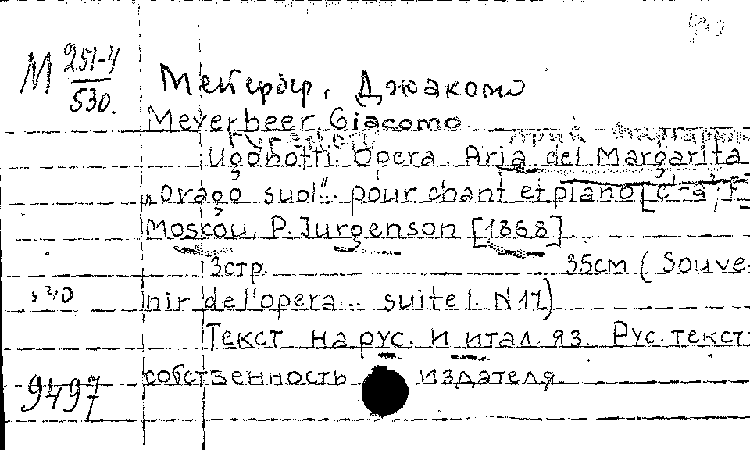 М 251-4
530.
Мейербер, Джакомо
Meyerbeer Giacomo
Ugonotti. Opera. Aria del Margarita
"O vago suol". pour chant et piano [c'-a'; F
Moscou, P. Jurgenson [1868]
3стр. 35см (Souve-
530 nir de l'opera... suite I. N 17)
Текст на рус. и итал. яз. Рус. текст
9497 собственность издателя.